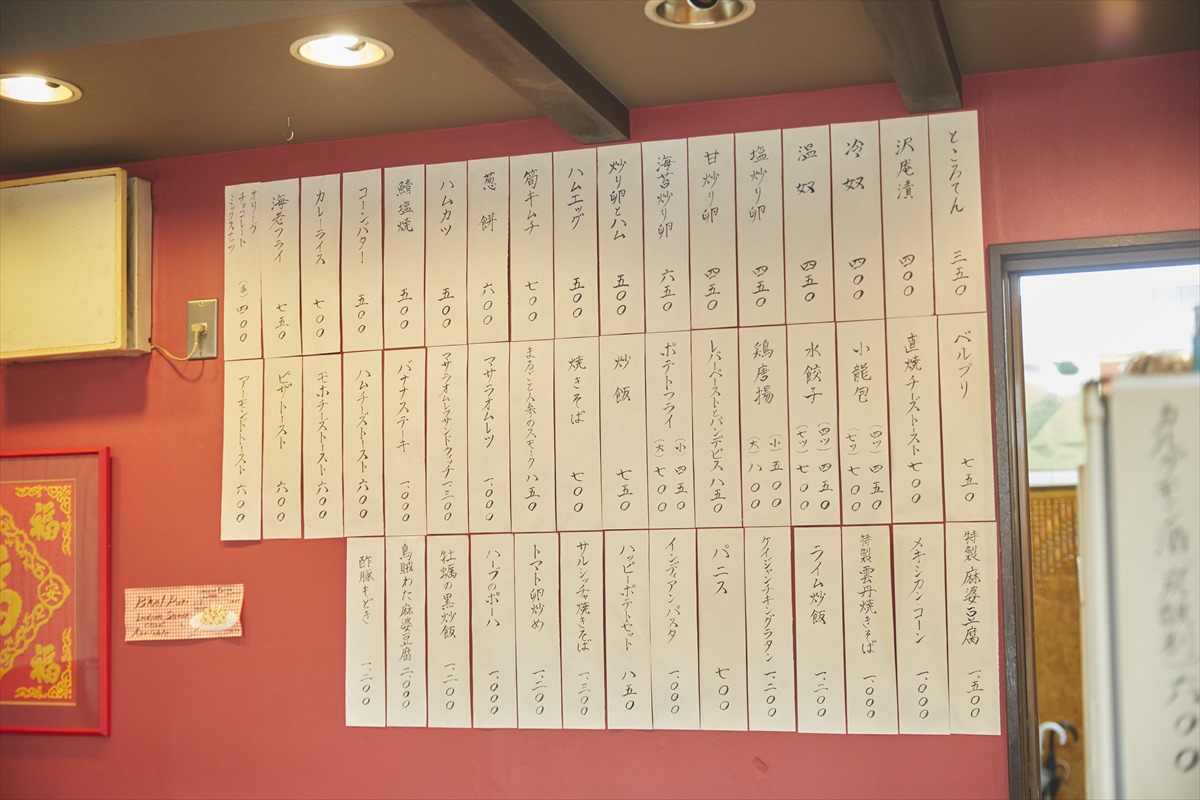 ところてん 三五〇
沢庵漬 四〇〇
冷奴 四〇〇
温奴 四五〇
塩炒り卵 四五〇
甘炒り卵 四五〇
海苔炒り卵 六五〇
炒り卵とハム 五〇〇
ハムエッグ 五〇〇
筍キムチ 七〇〇
葱餅 六〇〇
ハムカツ 五〇〇
鯖塩焼 五〇〇
コーンバター 五〇〇
カレーライス 七〇〇
海老フライ 七五〇
オリーヴ
チョコレート
ミックスナッツ
(各)四〇〇
ベルプリ 七五〇
直焼チーズトースト 七〇〇
小龍包 (四ツ)四五〇
(七ツ)七〇〇
水餃子 (四ツ)四五〇
(七ツ)七〇〇
鶏唐揚 (小)五〇〇
(大)八〇〇
ポテトフライ (小)四五〇
(大)七〇〇
レバーペーストとパンデピス 八五〇
炒飯 七五〇
焼きそば 七〇〇
まるごと人参のスモーク 八五〇
マサラオムレツ 一、〇〇〇
マサラオムレツサンドウィッチ 一、三〇〇
バナナステーキ 一、〇〇〇
ハムチーズトースト 六〇〇
モホチーズトースト 六〇〇
ピザトースト 六〇〇
アーモンドトースト 六〇〇
特製麻婆豆腐 一、五〇〇
メキシカンコーン 一、〇〇〇
特製雲丹焼きそば 一、〇〇〇
ライム炒飯 一、二〇〇
ケイジャンチキングラタン 一、二〇〇
パニス 七〇〇
インディアンパスタ 一、〇〇〇
ハッピーポテトセット 八五〇
サルシッチャ焼きそば 一、三〇〇
トマト卵炒め 一、二〇〇
ハーブのポーハ 一、〇〇〇
牡蠣の黒炒飯 一、二〇〇
烏賊わた麻婆豆腐 二、〇〇〇
酢豚もどき 一、二〇〇
Bhel Puri
Indian Snack
福
安
福
六〇〇